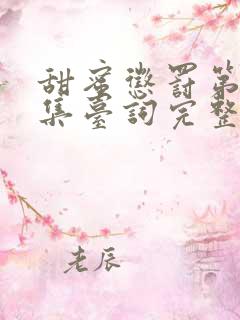 甜蜜懲罰第
集臺詞完整
老辰